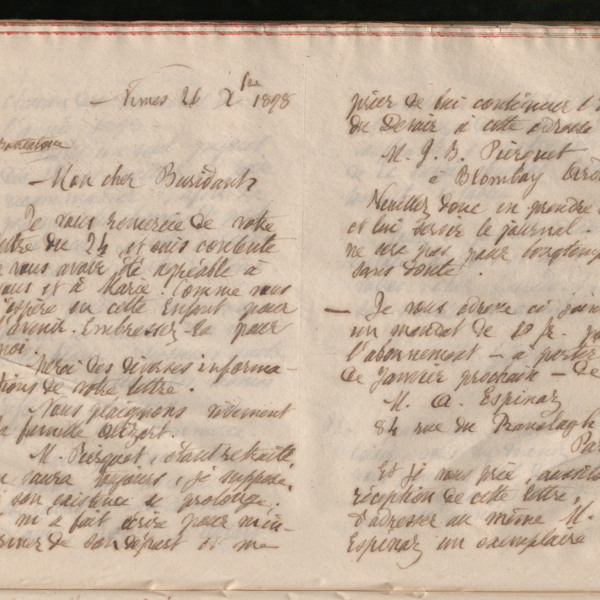 Nimes 26 Xbre 1898
Mon cher Buridant
Je vous remercie de votre
lettre du 24 et suis contente
vous avoir été agréable à
vous et à Marie. Comme vous
j'espère en cette Enfant pour
l'avenir. Embrassez-la pour
moi.
Merci des diverses informa-
tions de votre lettre.
Nous plaignons vivement
la famille
M. Pierquet, étant retraité
saura toujours, je suppose,
son existence se prolonge.
m'a fait écrire pour m'in-
former de son départ et me
prier de lui continuer l'
du Devoir à cette adresse
M. J. B. Pierquet
à Blombay Ard
Veuillez donc en prendre
et lui servir le journal.
ne sera pas pour longtemps
sans doute.
— Je vous adresse ci join
un mandat de 10 fr.
l'abonnement — à partir
de Janvier prochain — de
M. A. Espinaz
84 rue du Ranelagh
Par
Et je vous prie, aussitôt
réception de cette lettre,
d'adresser au même M.
Espinaz un exemplaire